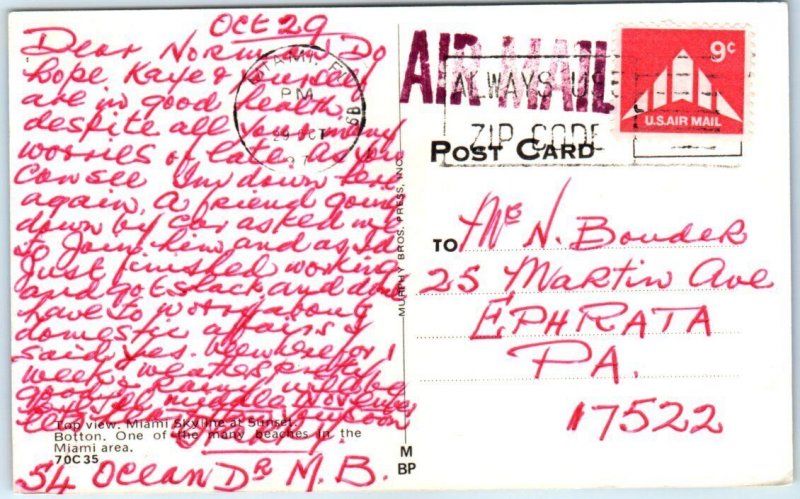 OCT 29
Dear Norm and Do
hope Kaye &
are in good health
despite all your many
worries of late. As you
can see I'm down here
again, A friend going
down by Car asked me
to Join him and as I'd
Just finished working
and got slack and dont
have to worry about
domestic affairs I
said yes. Been here for 1
week weather pretty
good &
middle November
soon
Top view: Miami Skyline at Sunset.
Botton. One of the many beaches in the
Miami area.
70C35
54 OCEAN DR M.B.
MIAMI, FL
PM
29 OCT
MURPHY BROS. PRESS, INC.
M
BP
AIR MAIL
ALWAYS USE
ZIP CODE
9c
U.S. AIR MAIL
POST CARD
TO
Mr N. Bouder
25 Martin Ave
EPHRATA
PA.
17522